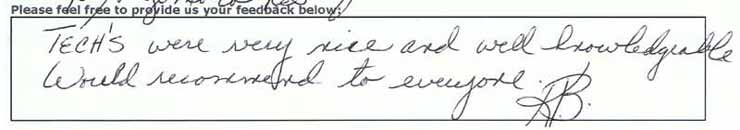 Please feel free to provide us your feedback below:
TECH'S were very nice and well knowledgeable
Would recommend to everyone.